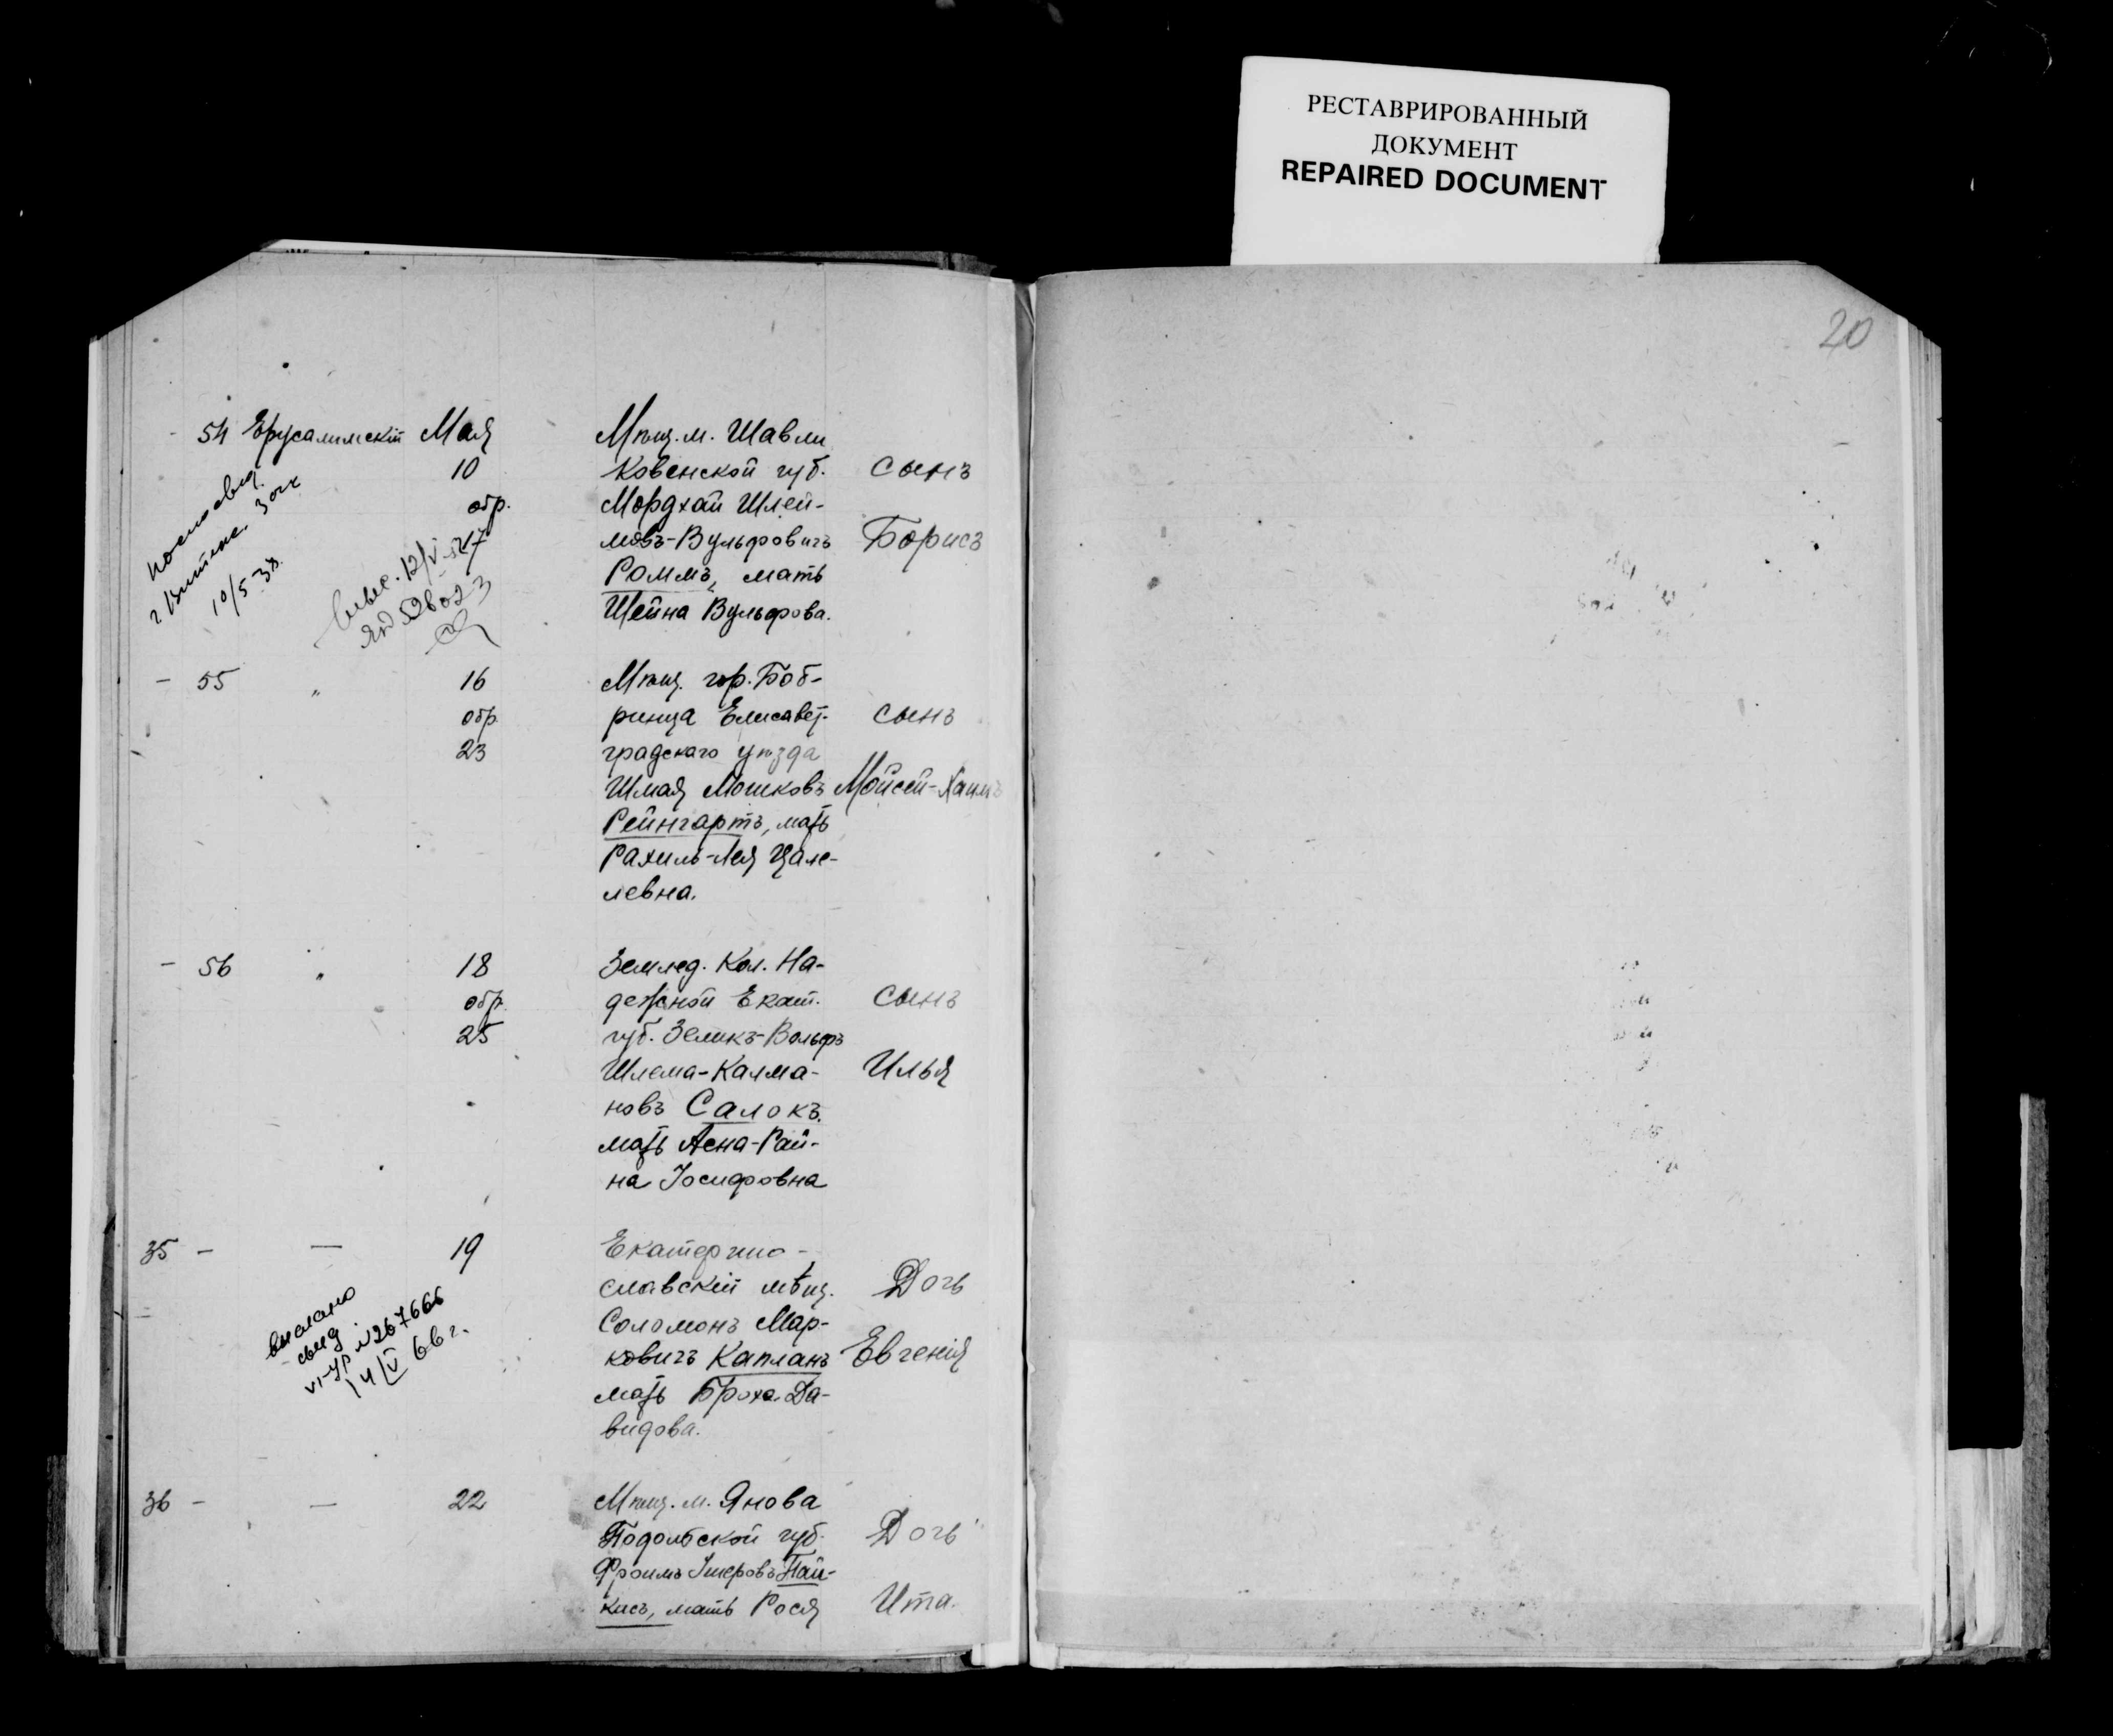 РЕСТАВРИРОВАННЫЙ
ДОКУМЕНТ
REPAIRED DOCUMENT
20
54 Ерусалимскій Мая
10
обр.
17
Мѣщ. м. Шавли
Ковенской губ.
Мордхай Шлей-
мовъ-Вульфовичъ
Роммъ, мать
Шейна Вульфова.
сынъ
Борисъ
г. Витебске
10/5 38.
12/V
- 55 " 16
обр.
23
Мѣщ. гор. Боб-
ринца Елисавет-
градскаго уѣзда
Шмая Мошковъ
Рейнгартъ, мать
Рахиль-Лея Цале-
левна.
сынъ
Мойсей-Хаимъ
- 56 " 18
обр.
25
Землед. Кол. На-
дежной Екат.
губ. Зеликъ-Вольфъ
Шлема-Калма-
новъ Салокъ.
мать Асна-Рай-
на Іосифовна
сынъ
Илья
35 - — 19
Екатерино-
славскій мѣщ.
Соломонъ Мар-
ковичъ Капланъ
мать Броха Да-
видова.
Дочь
Евгенія
свид.
№267666
14/V 66 г.
36 - — 22
Мѣщ. м. Янова
Подольской губ.
Фроимъ Ушеровъ Пай-
кисъ, мать Рося
Дочь
Ита.